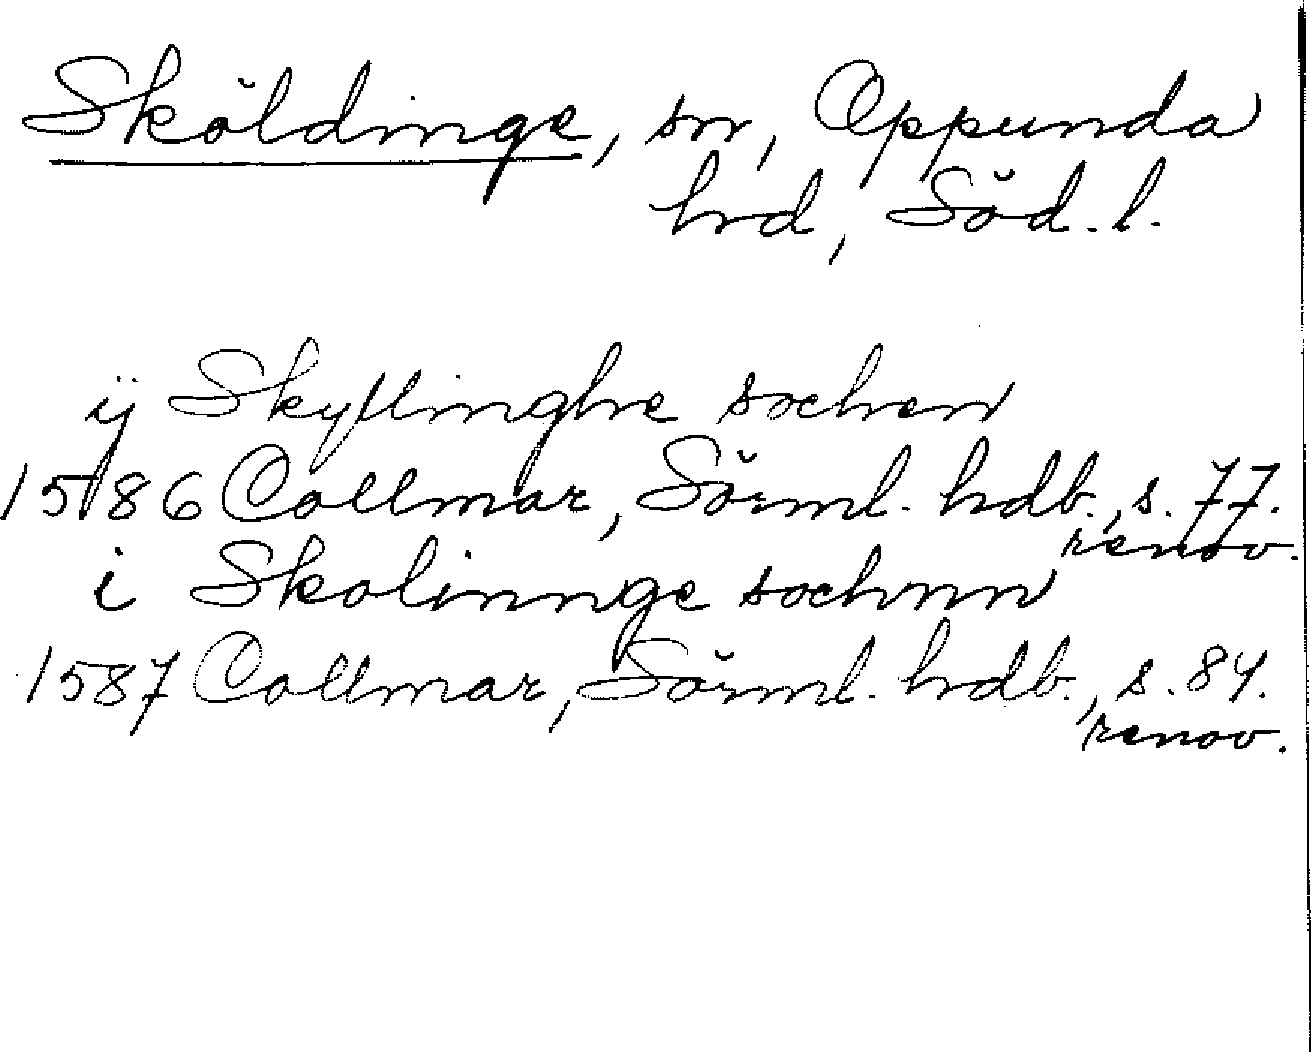 Sköldinge, sn, Oppunda
hrd, Söd. l.
ÿ Skyllinghe sochen
1586 Collmar, Sörml. hdb., s. 77.
renov.
i Skolinnge sochnn
1587 Collmar, Sörml. hdb., s. 84.
renov.